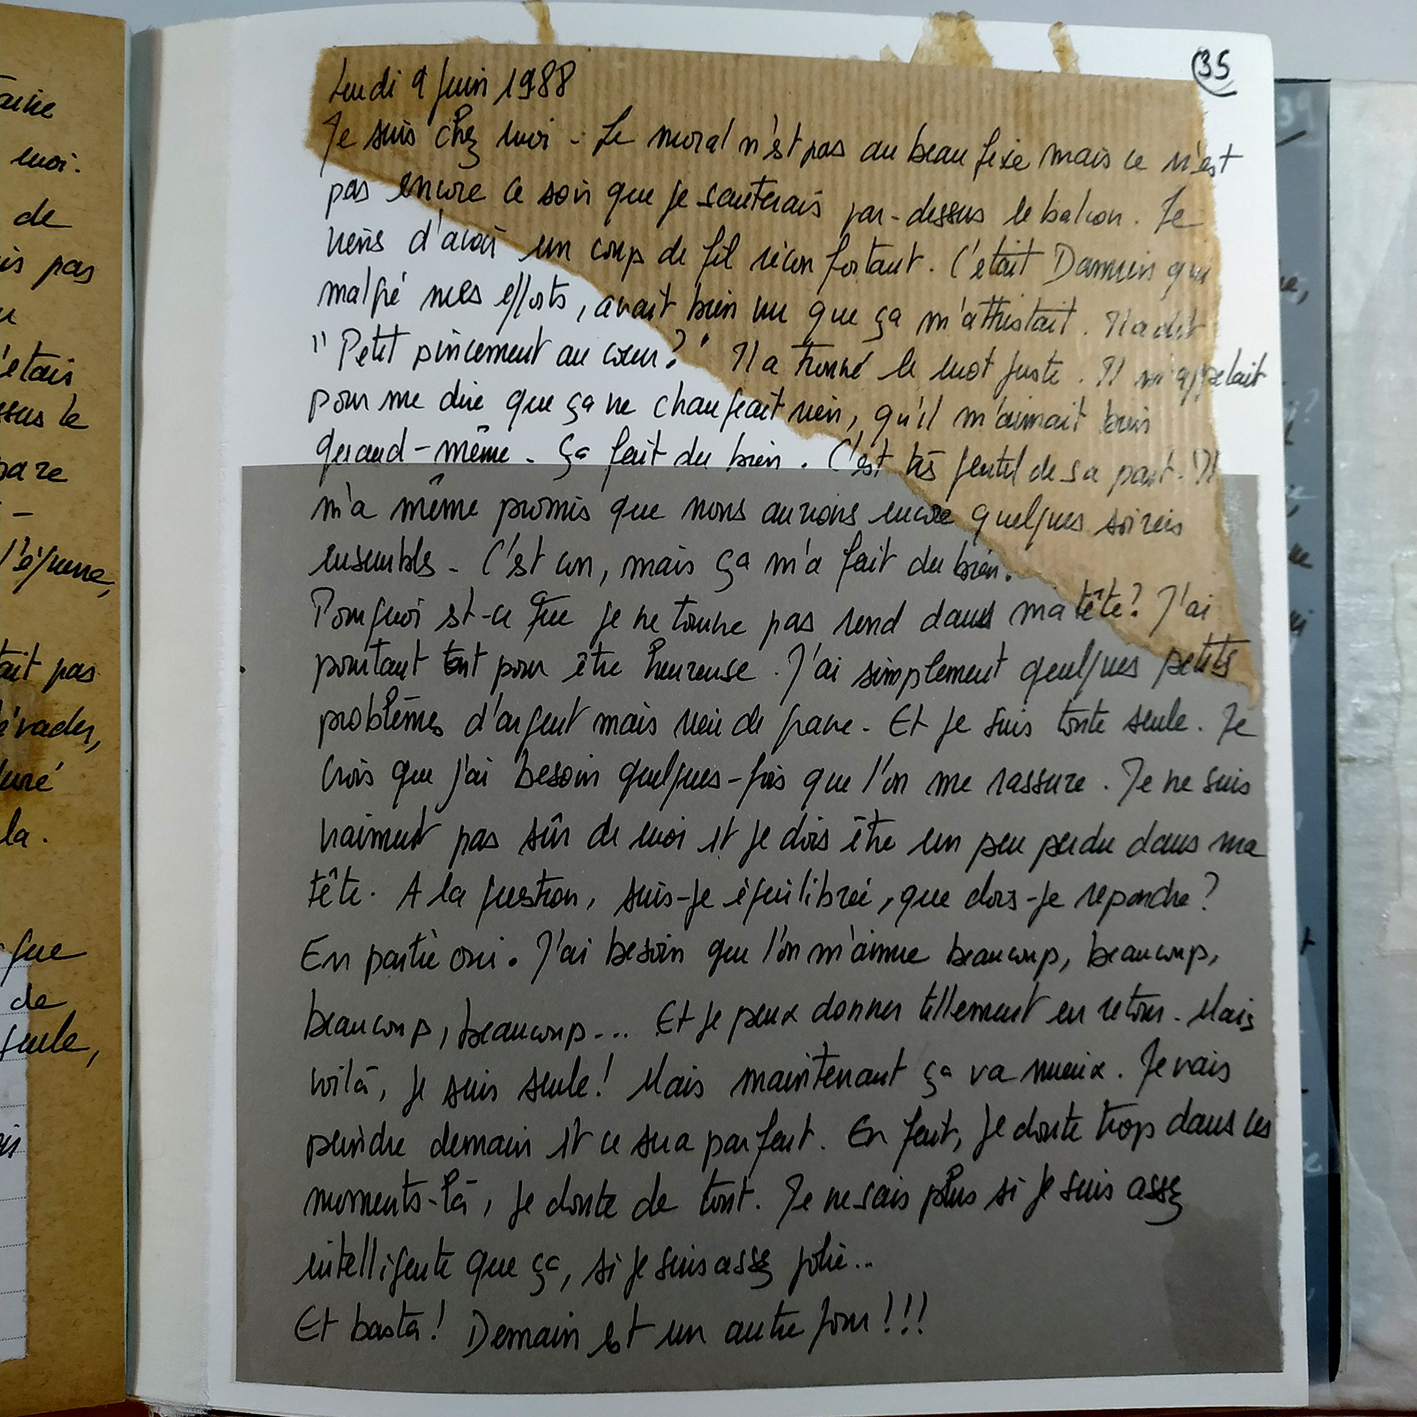 35
Lundi 9 Juin 1988
Je suis chez moi - Le moral n'est pas au beau fixe mais ce n'est
pas encore ce soir que je sauterais par-dessus le balcon. Je
viens d'avoir un coup de fil réconfortant. C'était Damien qui
malgré mes efforts, avait bien vu que ça m'attristait. Il a dit
"Petit pincement au cœur?" Il a trouvé le mot juste. Il m'appelait
pour me dire que ça ne changeait rien, qu'il m'aimait bien
quand-même. ça fait du bien. C'est très gentil de sa part. Il
m'a même promis que nous aurions encore quelques soirées
ensembles - C'est con, mais ça m'a fait du bien.
Pourquoi est-ce que je ne tourne pas rond dans ma tête? J'ai
pourtant tout pour être heureuse. J'ai simplement quelques petits
problèmes d'argent mais rien de grave. Et je suis toute seule. Je
crois que j'ai besoin quelques-fois que l'on me rassure. Je ne suis
vraiment pas sûr de moi et je dois être un peu perdu dans ma
tête. A la question, suis-je équilibrée, que dois-je répondre?
En partie oui. J'ai besoin que l'on m'aime beaucoup, beaucoup,
beaucoup, beaucoup... Et je peux donner tellement en retour. Mais
voilà, je suis seule! Mais maintenant ça va mieux. Je vais
peindre demain et ce sera parfait. En fait, je doute trop dans ces
moments-là, je doute de tout. Je ne sais plus si je suis assez
intelligente que ça, si je suis assez jolie...
Et basta! Demain est un autre jour!!!
moi.
de
is pas
étais
ssus le
pare
ait pas
évader,
la.
que
de
seule,